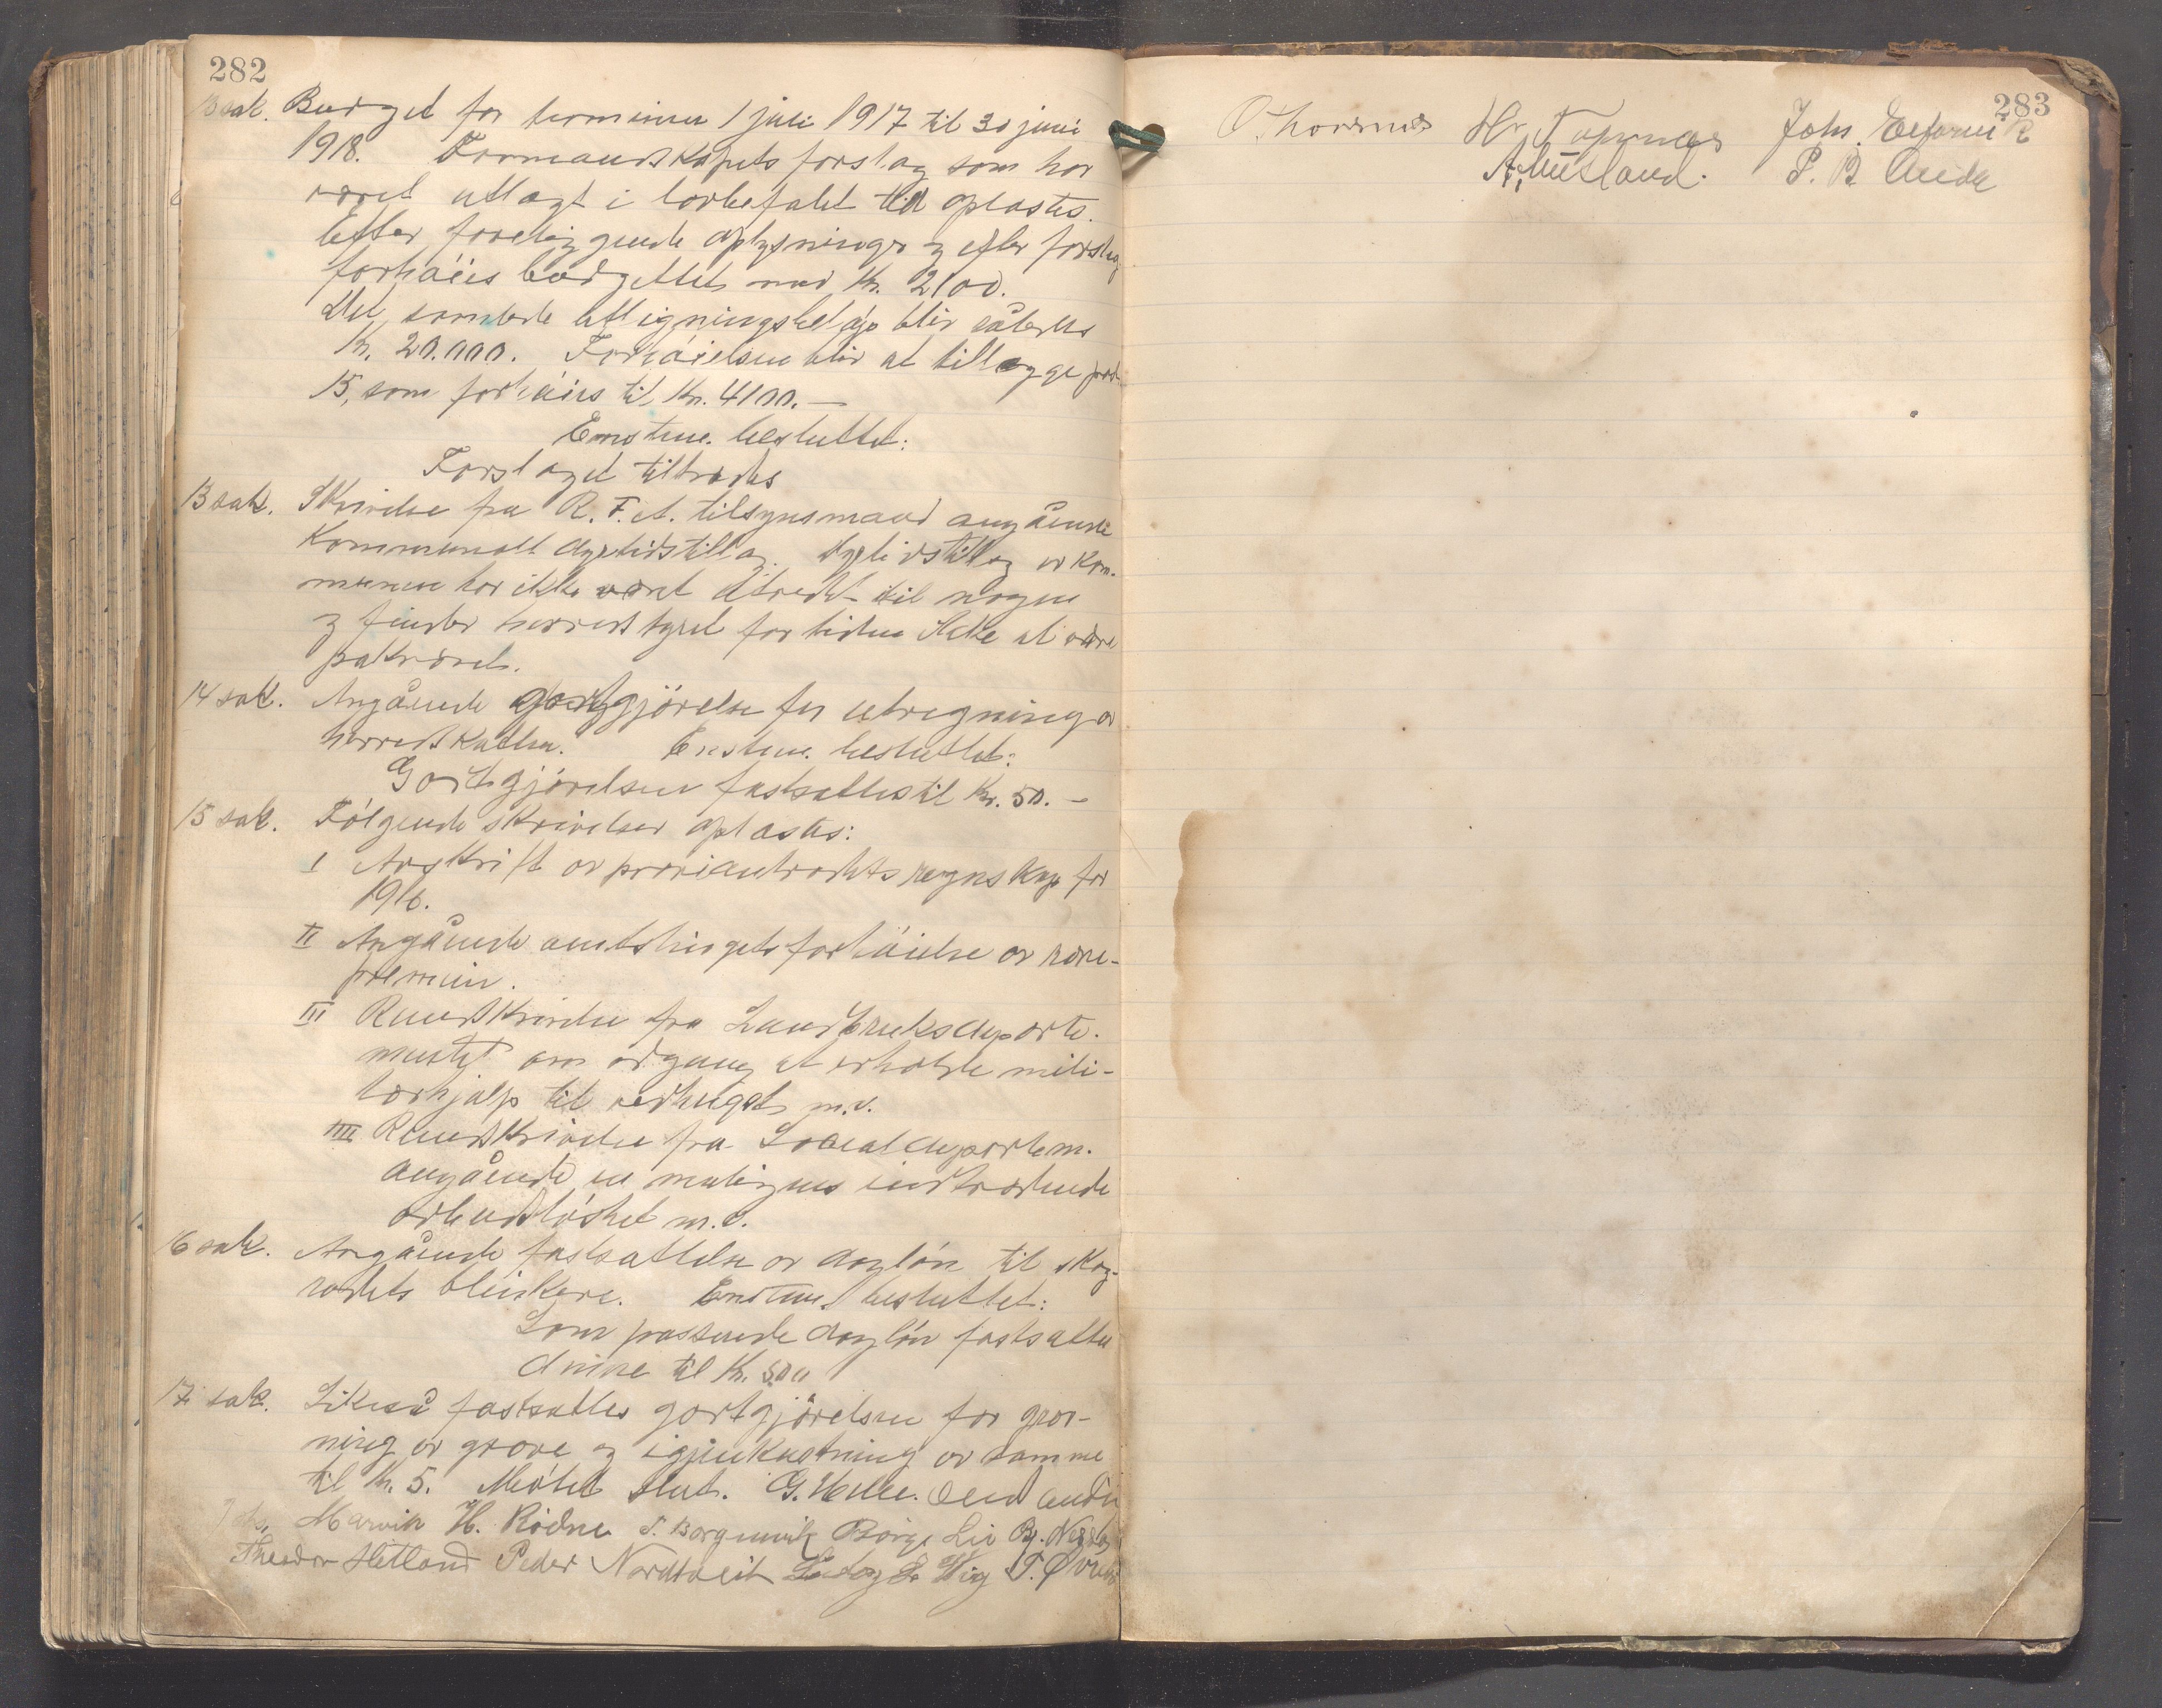 282
sak. Budget for terminen 1 juli 1917 til 30 juni
1918. Formandskapets forslag som har
været utlagt i lovbefalet tid oplæstes.
Efter foreliggende oplysninger og efter forslag
forhöies budgettet med kr. 2100.
Det samlede utligningsbelöp blir således
kr. 20.000. Forhöielsen blir at tillægge post
15, som forhöies til kr. 4100.—
Enstem. besluttet:
Forslaget tiltrædes
13 sak. Skrivelse fra R. F. A. tilsynsmand angående
kommunalt dyrtidstillæg. Dyrtidstillæg av kom-
munen har ikke været utredet til nogen
og finder herredstyret for tiden ikke at være
påkrævet.
14 sak. Angående godtgjörelse for utregning av
herredskatten. Enstem. besluttet:
Godtgjörelsen fastsættes til kr. 50.—
15 sak. Fölgende skrivelser oplæstes:
I Avskrift av proviantrådets regnskap for
1916.
II Angående amtstingets forhöielse av
premien.
III Rundskrivelse fra Landbruksdeparte-
mentet om adgang at erholde mili-
tærhjælp til vedhugst m.v.
IIII Rundskrivelse fra Socialdepartem.
angående en muligens indtrædende
arbeidslöshet m.v.
16 sak. Angående fastsættelse av daglön til skog-
rådets blinkere. Enstem. besluttet:
Som passende daglön fastsættes
denne til kr. 5.00
17 sak. Likeså fastsættes godtgjörelsen for grav-
ning av grave og igjenkastning av samme
til kr. 5. Mötet slut. G. Helle.
Johs. Marvik H. Rödne Börge Lie
Theodor Hetland Peder Nordtveit
283
Johs.
P. B.